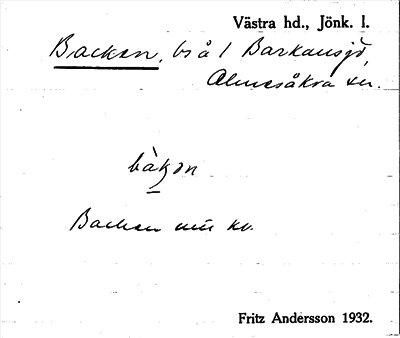 Västra hd., Jönk. l.
Backen, bs å 1 Barkansjö,
Almesåkra sn.
bàkən
Backen mtl kv.
Fritz Andersson 1932.